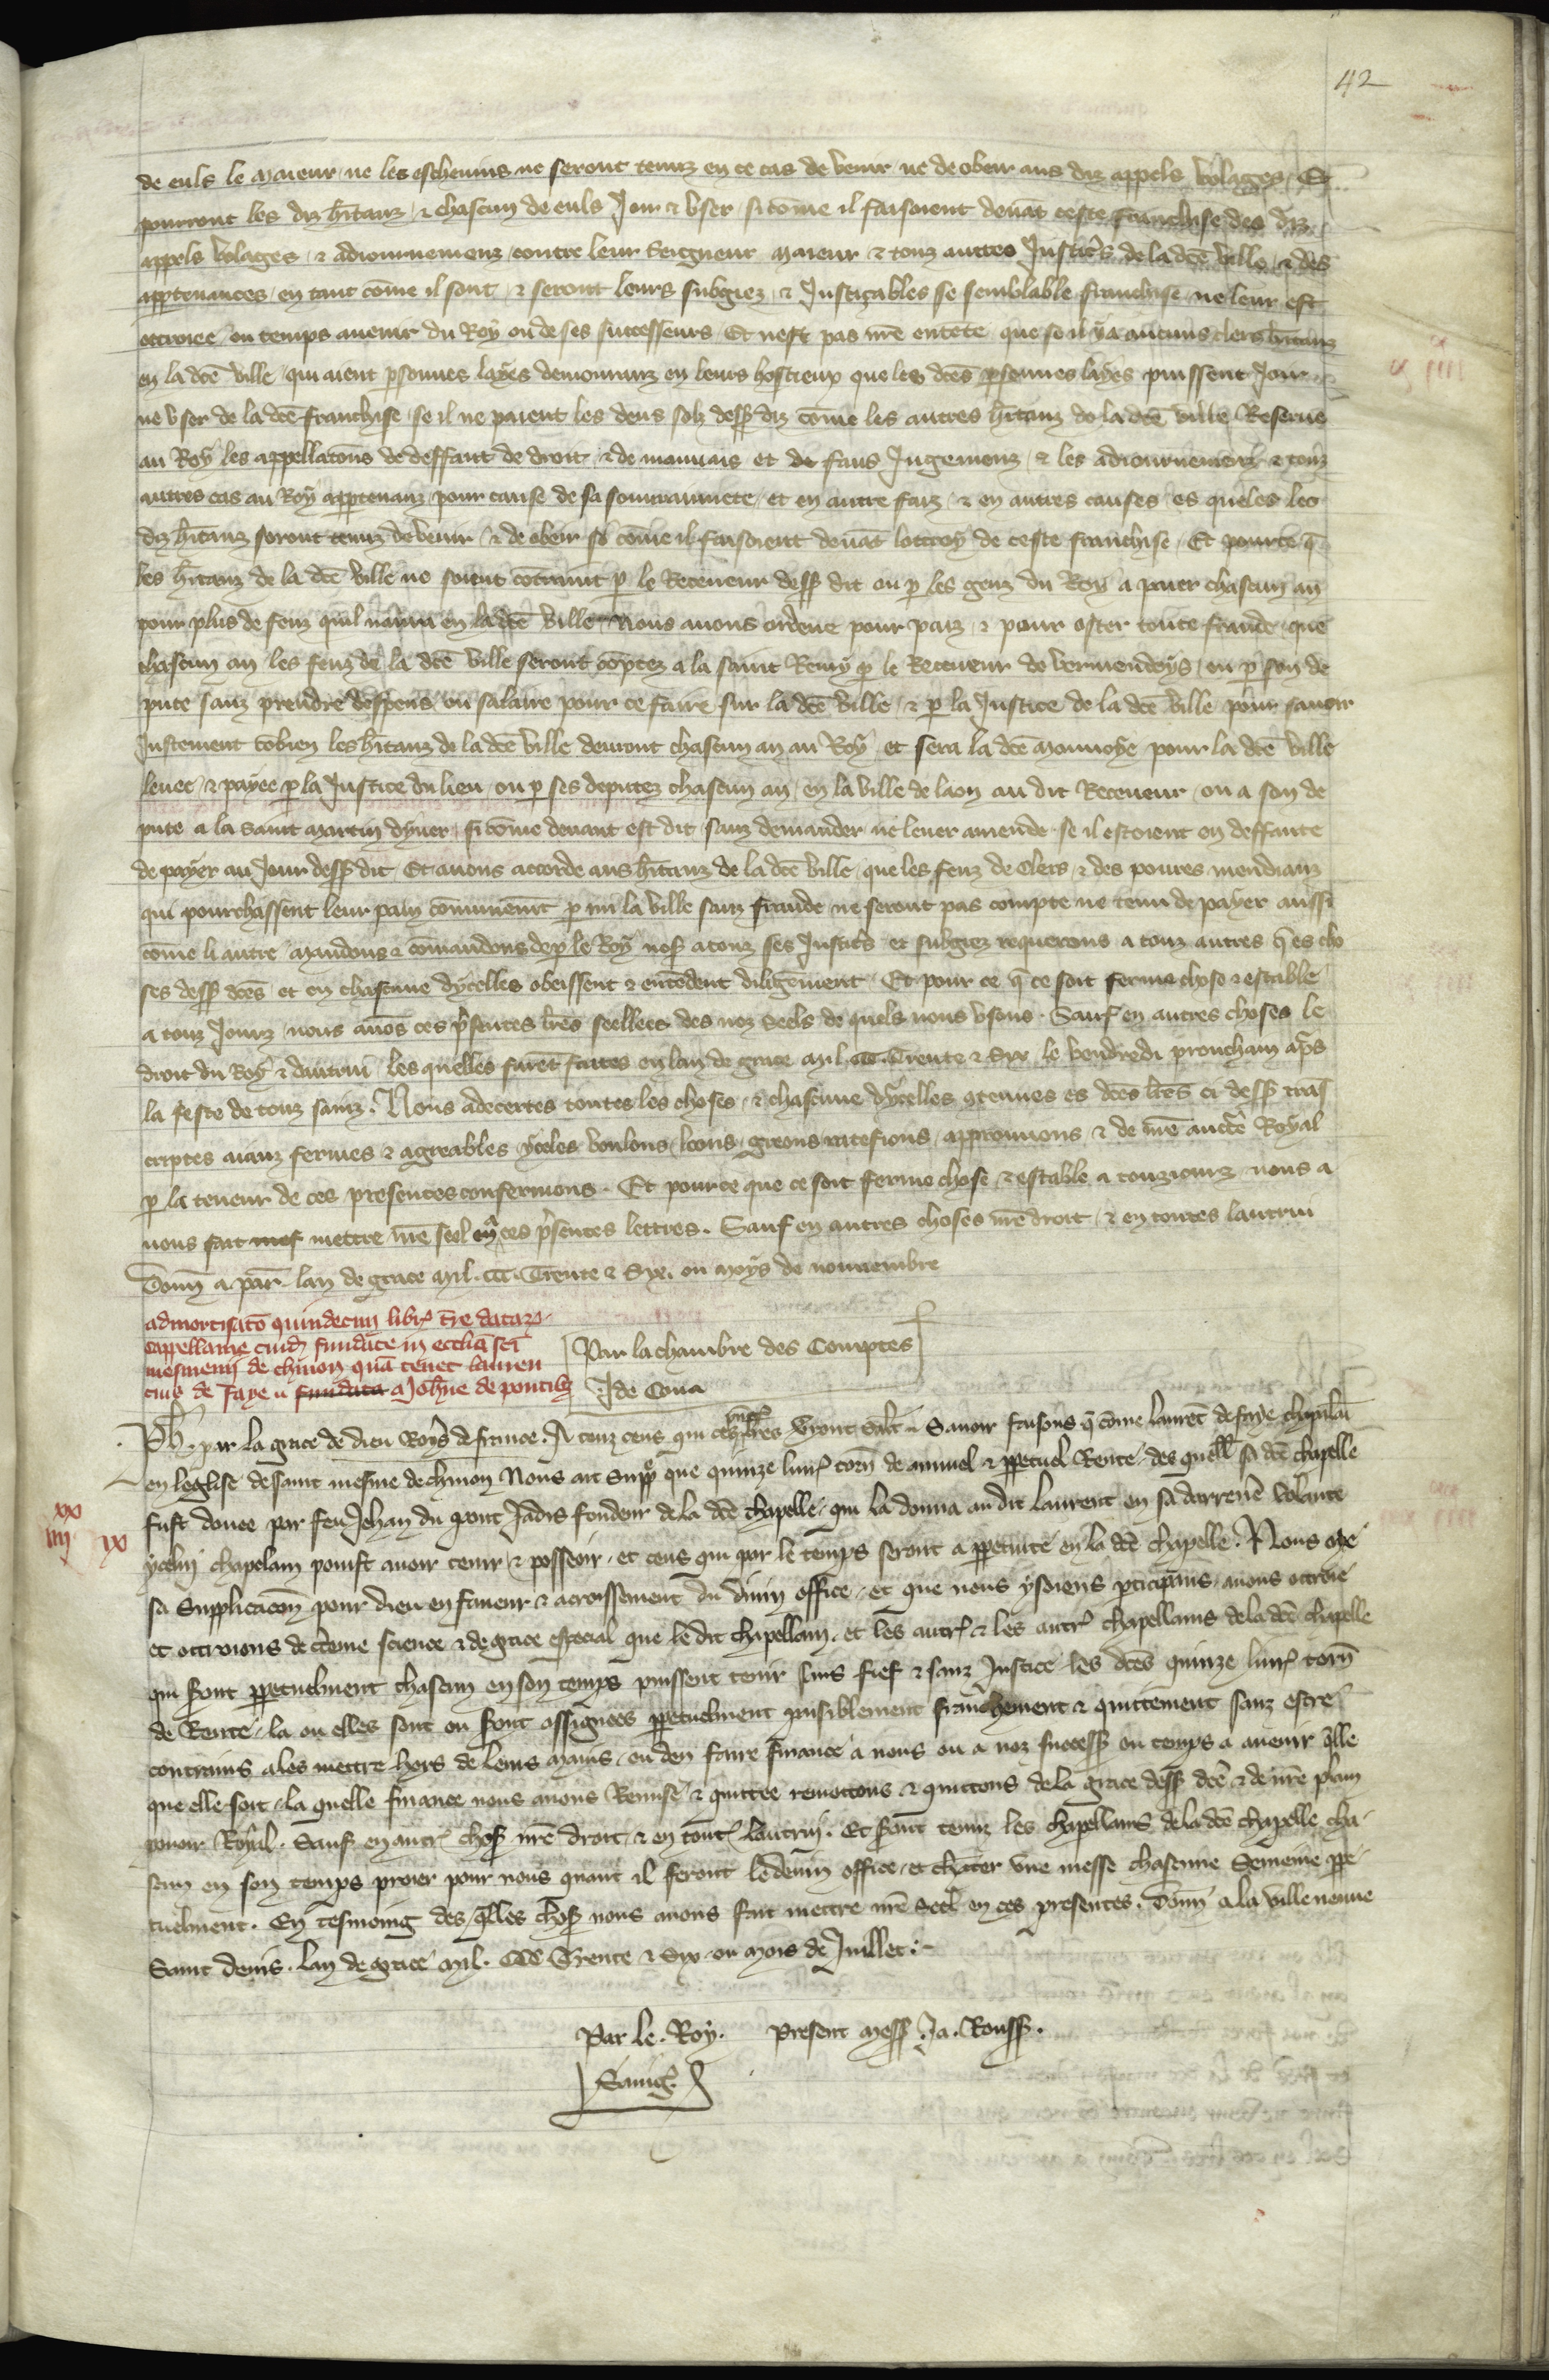 42
de euls le maieur ne les eschevins ne seront tenuz en ce cas de venir ne de obeir aus diz appels volages. Et
pourront les diz hītanz & chascun de euls Joir & user si cōme il faisoient devāt ceste franchise des diz
appels volages & adiournemenz contre leur Seigneur maieur & touz autres Justic̄s de la dcē ville & des
apptenances en tant cōme il sont & seront leurs subgiez & Justiçables se semblable franchise ne leur est
ottroiee ou temps avenir du Roy ou de ses successeurs Et nest pas nr̄e entēte que se il y a aucuns clers hītanz
en la dcē ville qui aient psonnes layes demouranz en leurs hostieux que les dcēs psonnes layes puissent Joir
ne user de la dcē franchise se il ne paient les deus solz dess diz cōme les autres hītanz de la dcē ville Reserve
au Roy les appellatōns de deffaut de droit & de mauvais et de faus Jugemenz & les adiournemenz & touz
autres cas au Roy apptenanz pour cause de sa souverainnete et en autre faiz & en autres causes es queles les
diz hītanz seront tenuz de venir & de obeir si cōme il faisoient devāt lottroy de ceste franchise Et pource q̄
les hītanz de la dcē ville ne soient cōtraint p le Receveur dess dit ou p les genz du Roy a paier chascun an
pour plus de feuz quil naura en la dcē ville Nous avons ordene pour paiz & pour oster toute fraude que
chascun an les feuz de la dcē ville seront cōptez a la saint Remy p le Receveur de vermendoys ou p son de
pute sanz prendre despens ou salaire pour ce faire sur la dcē ville & p la Justice de la dcē ville pour savoir
Justement cōbien les hītanz de la dcē ville devront chascun an au Roy et sera la dcē monnoye pour la dcē ville
levee & payee p la Justice du lieu ou p ses deputez chascun an en la ville de laon au dit Receveur ou a son de
pute a la saint martin dyver si cōme devant est dit sanz demander ne lever amende se il estoient en deffaute
de payer au Jour dess dit Et avons accorde aus hītanz de la dcē ville que les feuz de clers & des poures mendianz
qui pourchassent leur pain cōmunemt p mi la ville sanz fraude ne seront pas compte ne tenu de payer aussi
cōme li autre Mandons & cōmandons de p le Roy nos a touz ses Justic̄s et subgiez requerons a touz autres q̄ es cho
ses dess dcēs et en chascune dycelles obeissent & entēdent diligēment Et pour ce q̄ ce soit ferme chose & estable
a touz Jourz nous avōs ces p̄sentes lr̄es seellees des noz Seels de quels nous usons. Sauf en autres choses le
droit du Roy & dautrui les quelles furēt faites en lan de grace mil ccc Trente & Six le vendredi prouchain ap̄s
la feste de touz sainz. Nous adecertes toutes les choses & chascune dycelles ꝯtenues es dcēs lr̄es ci dess tras
criptes aianz fermes & agreables yceles voulons loons greons ratefions approuuons & de nr̄e auctē Royal
p la teneur de ces presentes confermons. Et pource que ce soit ferme chose & estable a touzjourz nous a
vons fait mettre nr̄e seel en ces p̄sentes lettres. Sauf en autres choses nr̄e droit & en toutes lautrui
Donn a par lan de grace mil. ccc. Trente & Six. ou moys de novembre
admortisatō quindecim libr t̄re datar
capellanie cuid fundate in ecclia sci
mesmenii de chinon quā tenet lauren
cius de Faye a Joh̄ne de pontib
Par la chambre des Comptes
J de Cona
Ph. par la grace de dieu Roys de france. A touz ceus qui ces p̄ntes lr̄es verront salt. Savoir faisons q̄ cōme laurēt de faye chapellain
en leglise de saint mesme de chinon Nous ait supp que quinze livr torn de annuel & ppetuel Rente des quell sa dcē chapelle
fust douee par feu Jehan du pont Jadis fondeur de la dcē chapelle qui la donna au dit laurent en sa darreniē volante
ycelui chapelain poust avoir tenir & posseoir et ceus qui par le temps seront a ppetuite en la dcē chapelle. Nous oye
sa Supplicacōn pour dieu en faveur & acroissement du divin office et que nous y soiens pticipans avons ottroie
et ottroions de cteine science & de grace especial que le dit chapellain et les autr & les autr chapellains de la dcē chapelle
qui sont ppetuelment chascun en son temps puissent tenir sans fief & sanz Justice les dcēs quinze livr torn
de Rente la ou elles sont ou sont assignees ppetuelment paisiblement franchement & quittement sanz estre
contrains a les mettre hors de leurs mains ou den faire finance a nous ou a noz success ou temps a avenir q̄lle
que elle soit la quelle finance nous avons Remise & quittee remettons & quittons de la grace dess dcē & de nr̄e plain
povoir Royal. Sauf en autr chos nr̄e droit & en tout lautrui. Et sont tenuz les chapellains de la dcē chapelle cha
scun en son temps proier pour nous quant il feront le devin office et chāter une messe chascune Semeine ppe
tuelment. En tesmoing des q̄lles chos nous avons fait mettre nr̄e Seel en ces presentes. Donn a la ville neuve
Saint denis. lan de grace mil. CCC Trente & Six ou mois de Juillet.
xx
iiij ix
Par le Roy. Present mess Ja. Rouss.
Savig.